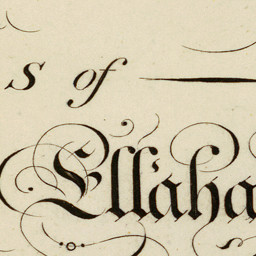 s of
Ellaha